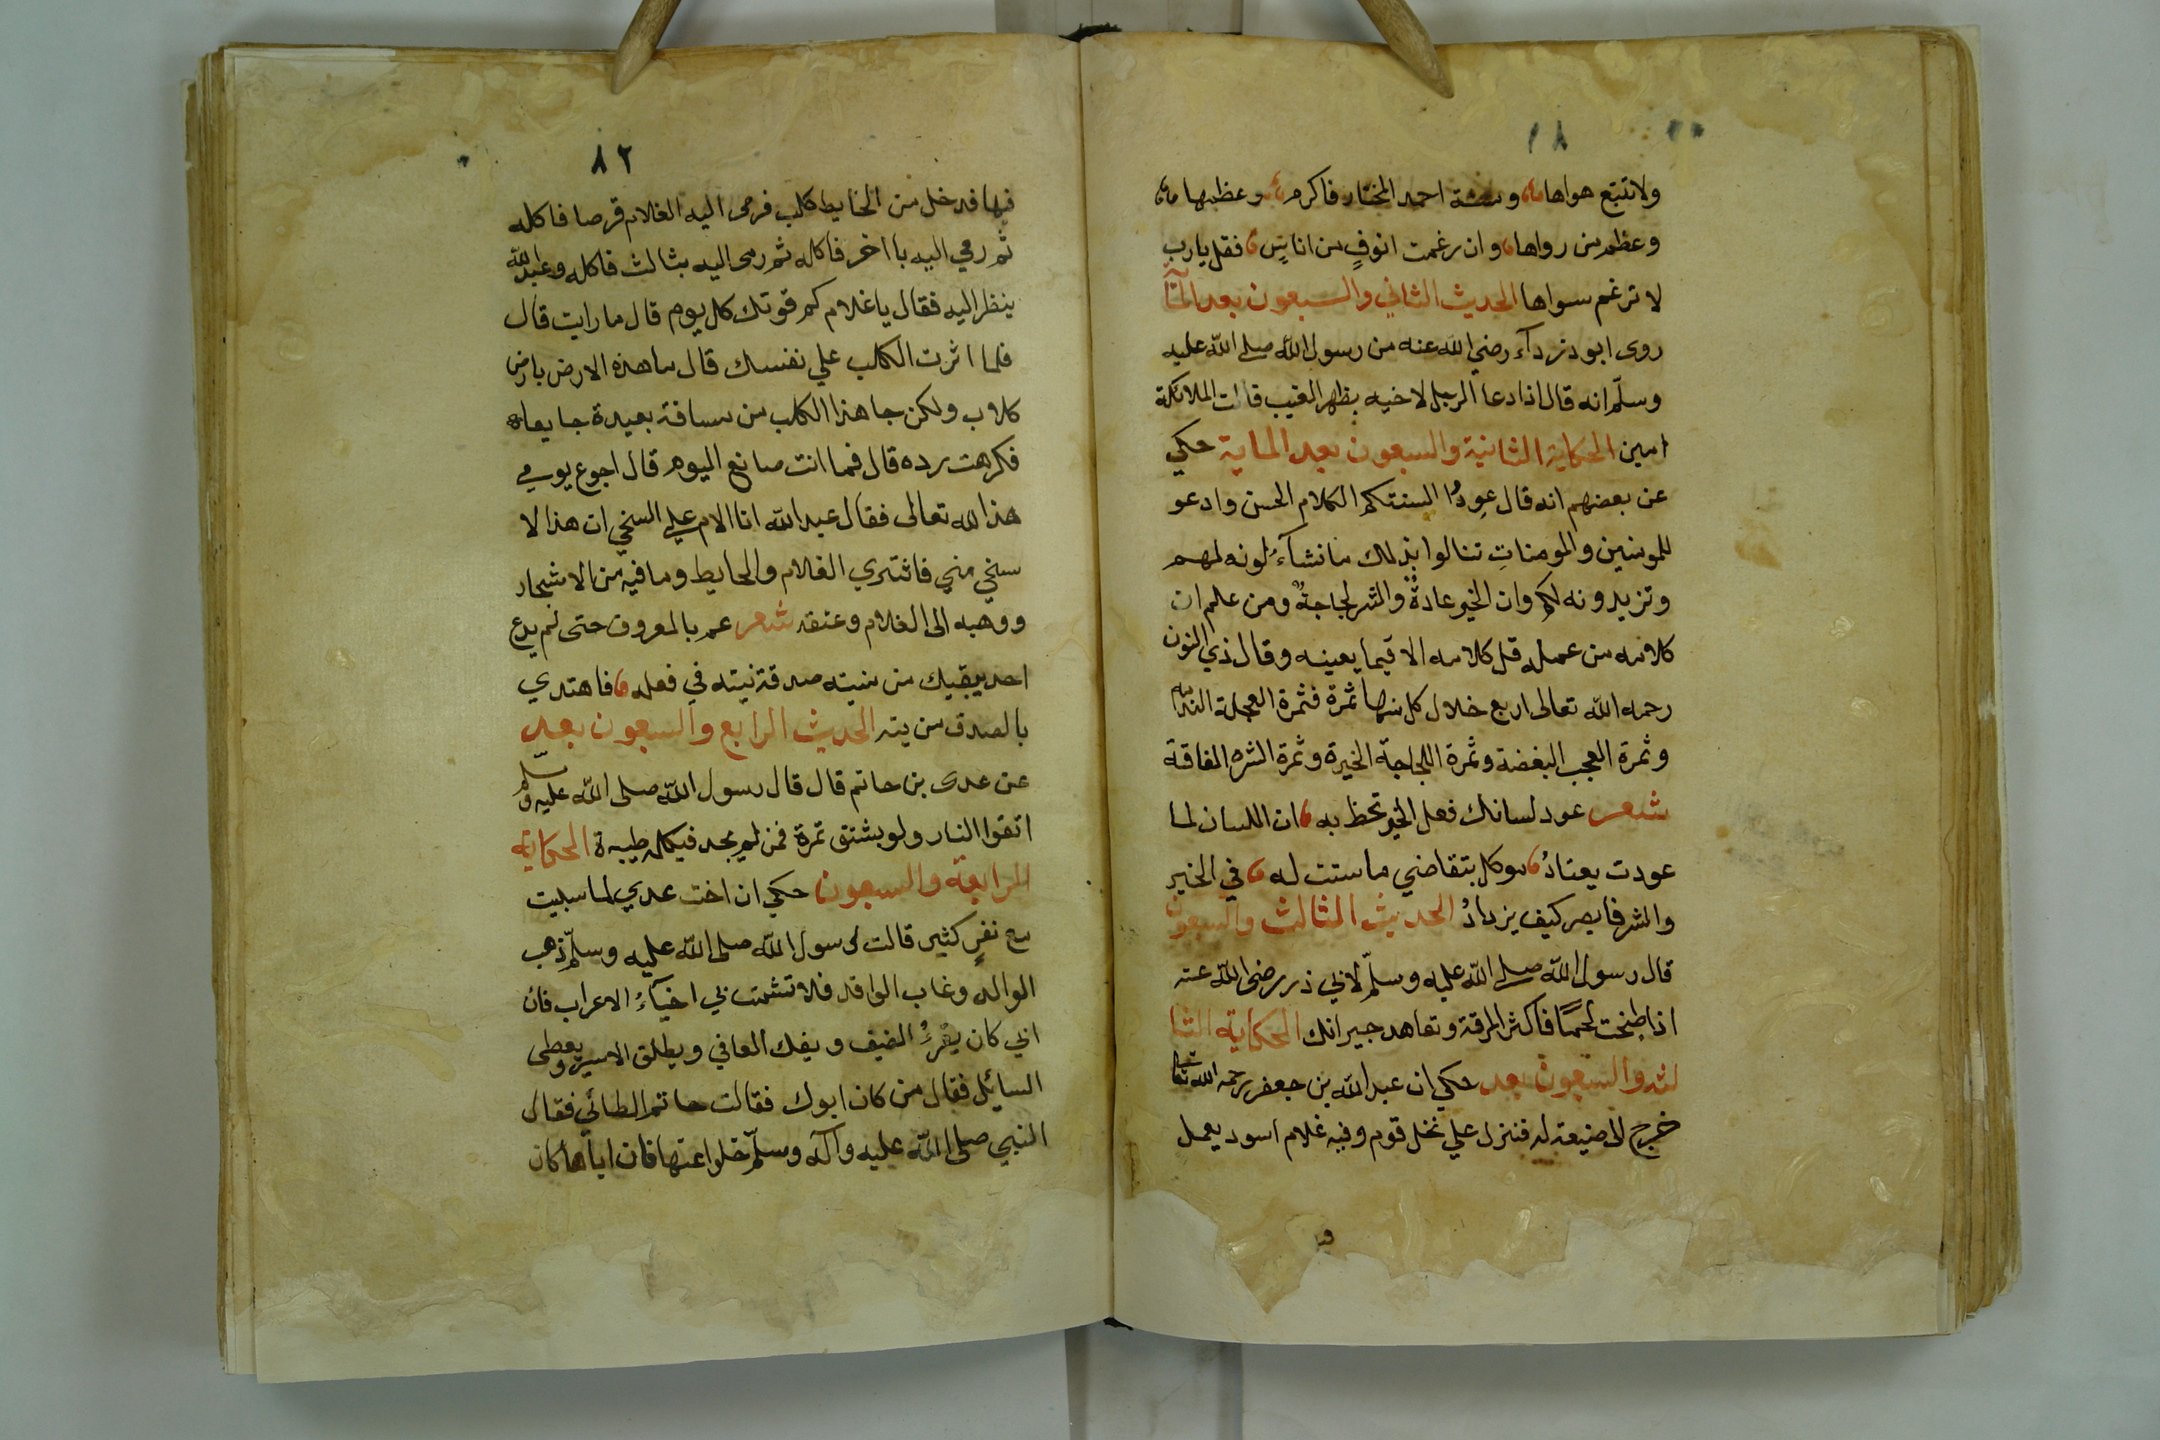 ٨١
ولا تتبع هواها وسنة احمد المختار فاكرم وعظمها
وعظم من رواها وان رغمت انوفٍ من اناسٍ فقل يارب
لا ترغم سواها الحديث الثاني والسبعون بعد المأَ
روى ابو دردآء رضي الله عنه من رسول الله صلى الله عليه
وسلّم انه قال اذا دعا الرجل لاخيه بظهر الغيب قالت الملائكة
امين الحكاية الثانية والسبعون بعد الماية حكي
عن بعضهم انه قال عودُا السنتكم الكلام الحسن وادعو
للمومنين والمومناتِ تنالوا بذلك ما نشآءُلونه لهم
وتزيدونه لكم وان الخير عادةٌ والشر لجاجةٌ ومن علم ان
كلامه من عمله قل كلامه الا فيما يعينه وقال ذي النون
رحمه الله تعالى اربع خلال كل منها ثمرة فثمرة العجلة الندامه
وثمرة العجب البغضة وثمرة اللجاجة الخيرة وثمرة الشره الفاقة
شعر عود لسانك فعل الخير تحظ به ان اللسان لما
عودت يعتادُ موكل بتقاضي ما سنت له في الخير
والشر فابصر كيف يزدادُ الحديث الثالث والسبعون
قال رسول الله صلى الله عليه وسلّم لابي ذر رضى الله عنه
اذا طبخت لحمًا فاكثر المرقة وتعاهد جيرانك الحكاية الثا
لثه والسبعون بعد حكي ان عبد الله بن جعفر رحمه الله تعالى
خرج الى ضيعته له فنزل علي نخل قوم وفيه غلام اسود يعمل
فيـ
٨٢
فيها فدخل من الحايط كلب فرمى اليه الغلام قرصا فاكله
ثم رمي اليه باا خر فاكله ثم رمى اليه بثالث فاكله وعبد الله
ينظر اليه فقال يا غلام كم قوتك كل يوم قال ما رايت قال
فلما اثرت الكلب علي نفسك قال ما هذه الارض بارض
كلاب ولكن جا هذا الكلب من مسافة بعيدة جايعا
فكرهت رده قال فما انت صانع اليوم قال اجوع يومي
هذا لله تعالى فقال عبد الله انا الام على السخي ان هذا لا
سخي مني فاشتري الغلام والحايط وما فيه من الاشجار
ووهبه الى الغلام وعتقه شعر عم بالمعروف حتى لم يدع
احد يبقيك من منيته صدقة نيته في فعله فاهتدي
بالصدق من يته الحديث الرابع والسبعون بعد
عن عدى بن حاتم قال قال رسول الله صلى الله عليه وسلّم
اتقوا النار ولو بشتق تمرة فمن لم يجد فبكلمه طيبة الحكاية
الرابعة والسبعون حكي ان اخت عدي لما سبيت
مع نفرٍ كثير قالت لرسول الله صلى الله عليه وسلّم ذهب
الوالد وغاب الوافد فلا تشمت بي احيآءُ الاعراب فان
ابي كان يقرءُ الضيف ويفك العافي ويطلق الاسير ويعطى
السايل فقال من كان ابوك فقالت حاتم الطائي فقال
النبي صلى الله عليه وآله وسلّم خلوا عنها فان اباها كان